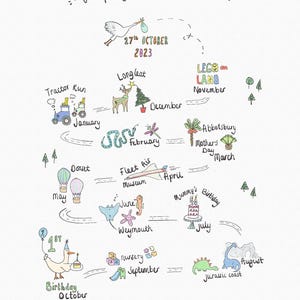 27th OCTOBER
2023
Longleat
LEGO
LAND
November
Tractor Run
January
December
February
Abbotsbury
Mothers
Day
March
Dorset
May
Fleet Air
Museum
April
June
Weymouth
Mummy's Birthday
July
1ST
Birthday
October
Nursery
September
August
Jurassic coast